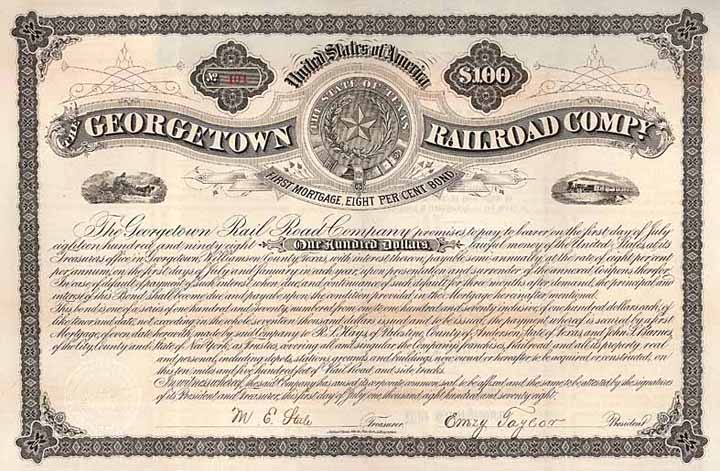 United States of America
No 101
$100
THE STATE OF TEXAS
THE GEORGETOWN RAILROAD COMPY.
FIRST MORTGAGE, EIGHT PER CENT BOND.
The Georgetown Rail Road Company promises to pay to bearer on the first day of July
eighteen hundred and ninety eight One Hundred Dollars, lawful money of the United States, at its
Treasurers office in Georgetown, Williamson County, Texas, with interest thereon, payable semi-annually, at the rate of eight per cent
per annum, on the first days of July and January in each year, upon presentation and surrender of the annexed Coupons therefor.
In case of default of payment of such interest when due, and continuance of such default for three months after demand, the principal and
interest of this Bond shall become due and payable upon the condition provided in the Mortgage hereinafter mentioned.
This bond is one of a series of one hundred and seventy, numbered from one to one hundred and seventy inclusive, of one hundred dollars each, of
like tenor and date, not exceeding on the whole seventeen thousand dollars issued and to be issued, the payment whereof is secured by first
Mortgage, of even date herewith, made by said Company to of Palestine, County of Anderson, State of Texas, and John S. Barnes
of the City, County and State of New York, as Trustees, covering all and singular the Company's franchises, Railroad and all its property real
and personal, including depots, stations, grounds and buildings, now owned or hereafter to be acquired or constructed, on
the ten miles and five hundred feet of Rail Road and side tracks.
In witness whereof, the said Company has caused its corporate common seal to be affixed and the same to be attested by the signatures
of its President and Treasurer, this first day of July, one thousand eight hundred and seventy eight.
M. E. Steele Treasurer. Emzy Taylor President